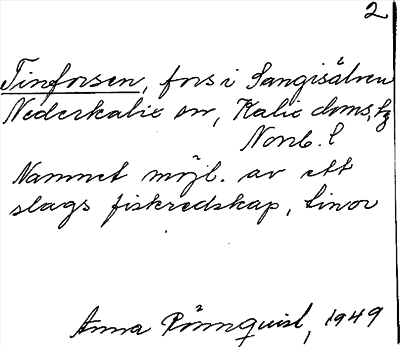 2
Tinforsen, fors i Sangisälven
Nederkalix sn, Kalix doms.hg
Norrb. l
Namnet möjl. av ett
slags fiskredskap, tinor
Anna Rönnquist, 1949